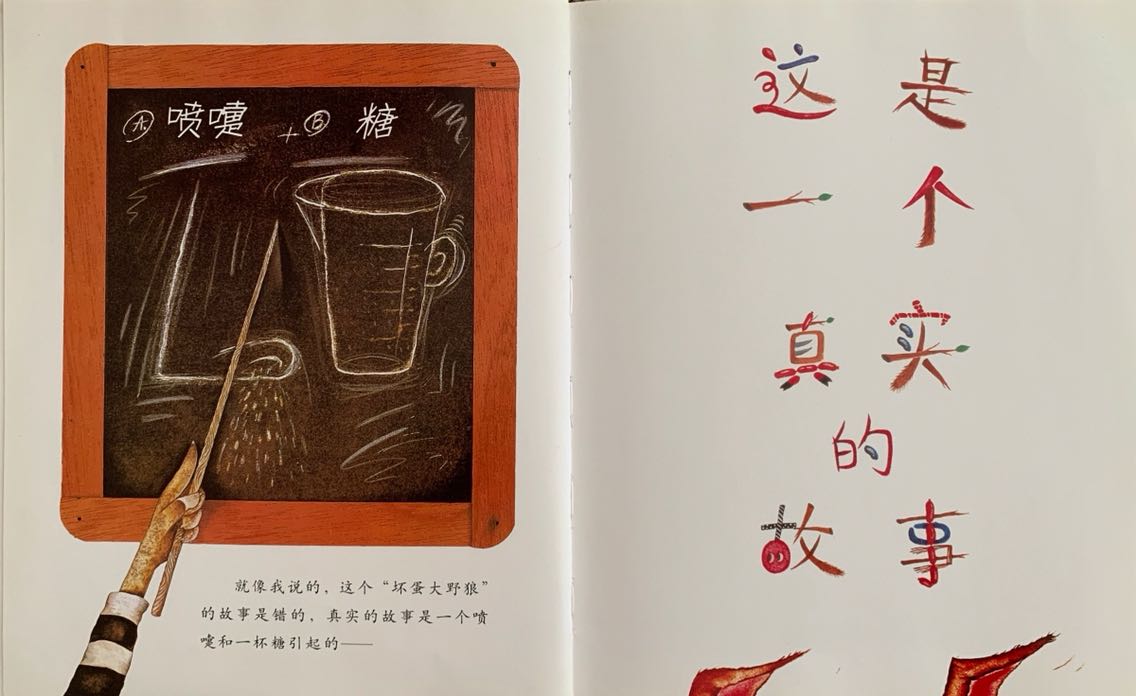 Ⓐ喷嚏 + Ⓑ 糖
就像我说的，这个“坏蛋大野狼”
的故事是错的，真实的故事是一个喷
嚏和一杯糖引起的——
这是
一个
真实
的
故事